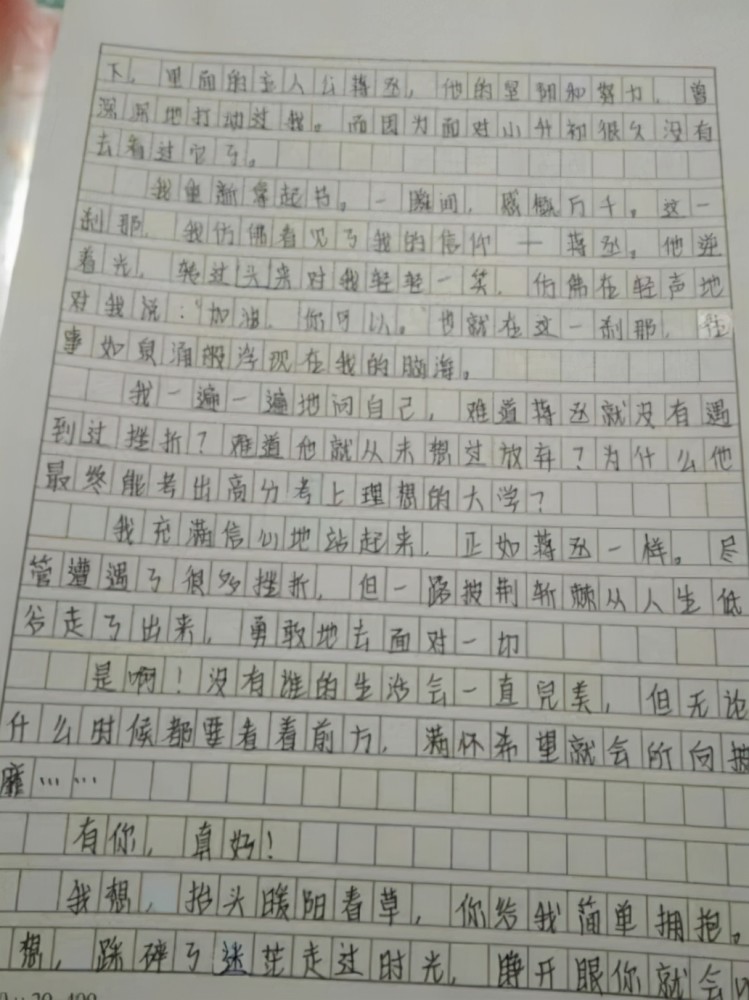 下，里面的主人公蒋丞，他的坚韧和努力，曾
深深地打动过我。而因为面对小升初很久没有
去看过它了。
我重新拿起书。一瞬间，感慨万千。这一
刹那，我仿佛看见了我的信仰——蒋丞。他逆
着光，转过头来对我轻轻一笑，仿佛在轻声地
对我说：“加油，你可以。”也就在这一刹那，往
事如泉涌般浮现在我的脑海。
我一遍一遍地问自己，难道蒋丞就没有遇
到过挫折？难道他就从未想过放弃？为什么他
最终能考出高分考上理想的大学？
我充满信心地站起来，正如蒋丞一样。尽
管遭遇了很多挫折，但一路披荆斩棘从人生低
谷走了出来，勇敢地去面对一切
是啊！没有谁的生活会一直完美，但无论
什么时候都要看着前方，满怀希望就会所向披
靡……
有你，真好！
我想，抬头暖阳春草，你给我简单拥抱。
想，踩碎了迷茫走过时光，睁开眼你就会